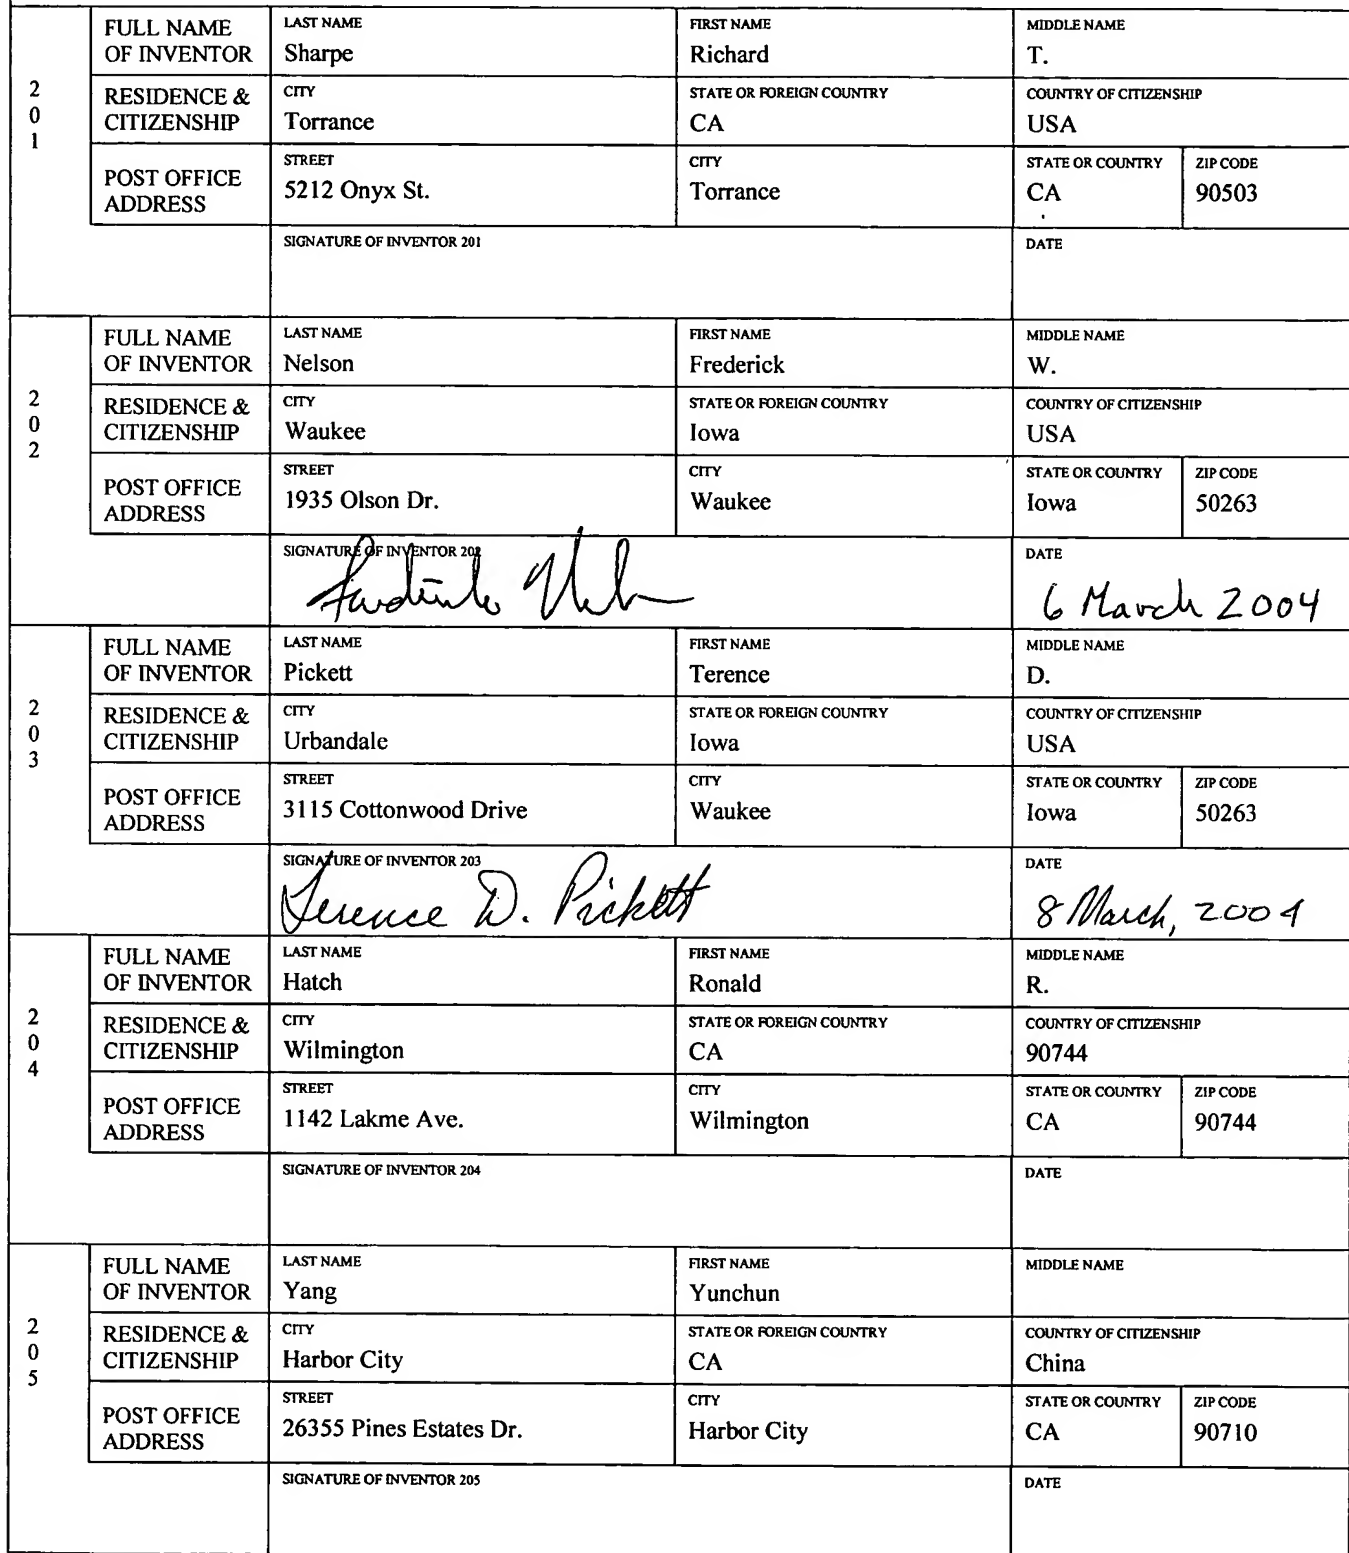 201
FULL NAME OF INVENTOR
LAST NAME Sharpe
FIRST NAME Richard
MIDDLE NAME T.
RESIDENCE & CITIZENSHIP
CITY Torrance
STATE OR FOREIGN COUNTRY CA
COUNTRY OF CITIZENSHIP USA
POST OFFICE ADDRESS
STREET 5212 Onyx St.
CITY Torrance
STATE OR COUNTRY CA
ZIP CODE 90503
SIGNATURE OF INVENTOR 201
DATE
202
FULL NAME OF INVENTOR
LAST NAME Nelson
FIRST NAME Frederick
MIDDLE NAME W.
RESIDENCE & CITIZENSHIP
CITY Waukee
STATE OR FOREIGN COUNTRY Iowa
COUNTRY OF CITIZENSHIP USA
POST OFFICE ADDRESS
STREET 1935 Olson Dr.
CITY Waukee
STATE OR COUNTRY Iowa
ZIP CODE 50263
SIGNATURE OF INVENTOR 202
DATE 6 March 2004
203
FULL NAME OF INVENTOR
LAST NAME Pickett
FIRST NAME Terence
MIDDLE NAME D.
RESIDENCE & CITIZENSHIP
CITY Urbandale
STATE OR FOREIGN COUNTRY Iowa
COUNTRY OF CITIZENSHIP USA
POST OFFICE ADDRESS
STREET 3115 Cottonwood Drive
CITY Waukee
STATE OR COUNTRY Iowa
ZIP CODE 50263
SIGNATURE OF INVENTOR 203 Terence D. Pickett
DATE 8 March, 2004
204
FULL NAME OF INVENTOR
LAST NAME Hatch
FIRST NAME Ronald
MIDDLE NAME R.
RESIDENCE & CITIZENSHIP
CITY Wilmington
STATE OR FOREIGN COUNTRY CA
COUNTRY OF CITIZENSHIP 90744
POST OFFICE ADDRESS
STREET 1142 Lakme Ave.
CITY Wilmington
STATE OR COUNTRY CA
ZIP CODE 90744
SIGNATURE OF INVENTOR 204
DATE
205
FULL NAME OF INVENTOR
LAST NAME Yang
FIRST NAME Yunchun
MIDDLE NAME
RESIDENCE & CITIZENSHIP
CITY Harbor City
STATE OR FOREIGN COUNTRY CA
COUNTRY OF CITIZENSHIP China
POST OFFICE ADDRESS
STREET 26355 Pines Estates Dr.
CITY Harbor City
STATE OR COUNTRY CA
ZIP CODE 90710
SIGNATURE OF INVENTOR 205
DATE